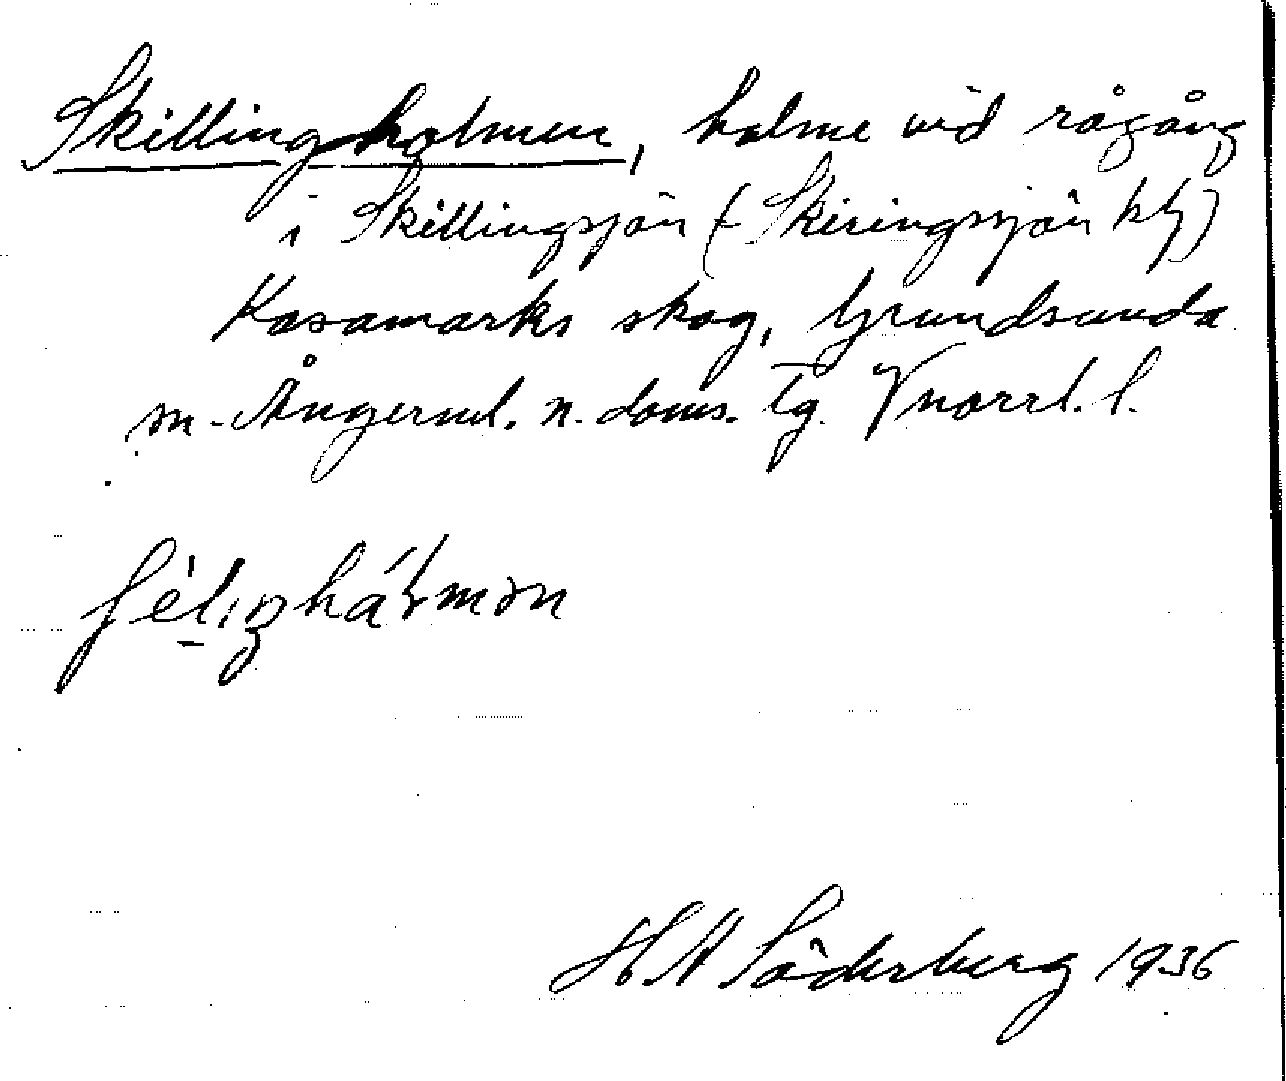 Skillingholmen, holme vid rågång
i Skillingsjön (= Skiringsjön kbj)
Kasamarks skog, Grundsunda
sn. Ångerml. n. doms. tg. Vnorrl. l.
H A Söderberg 1936